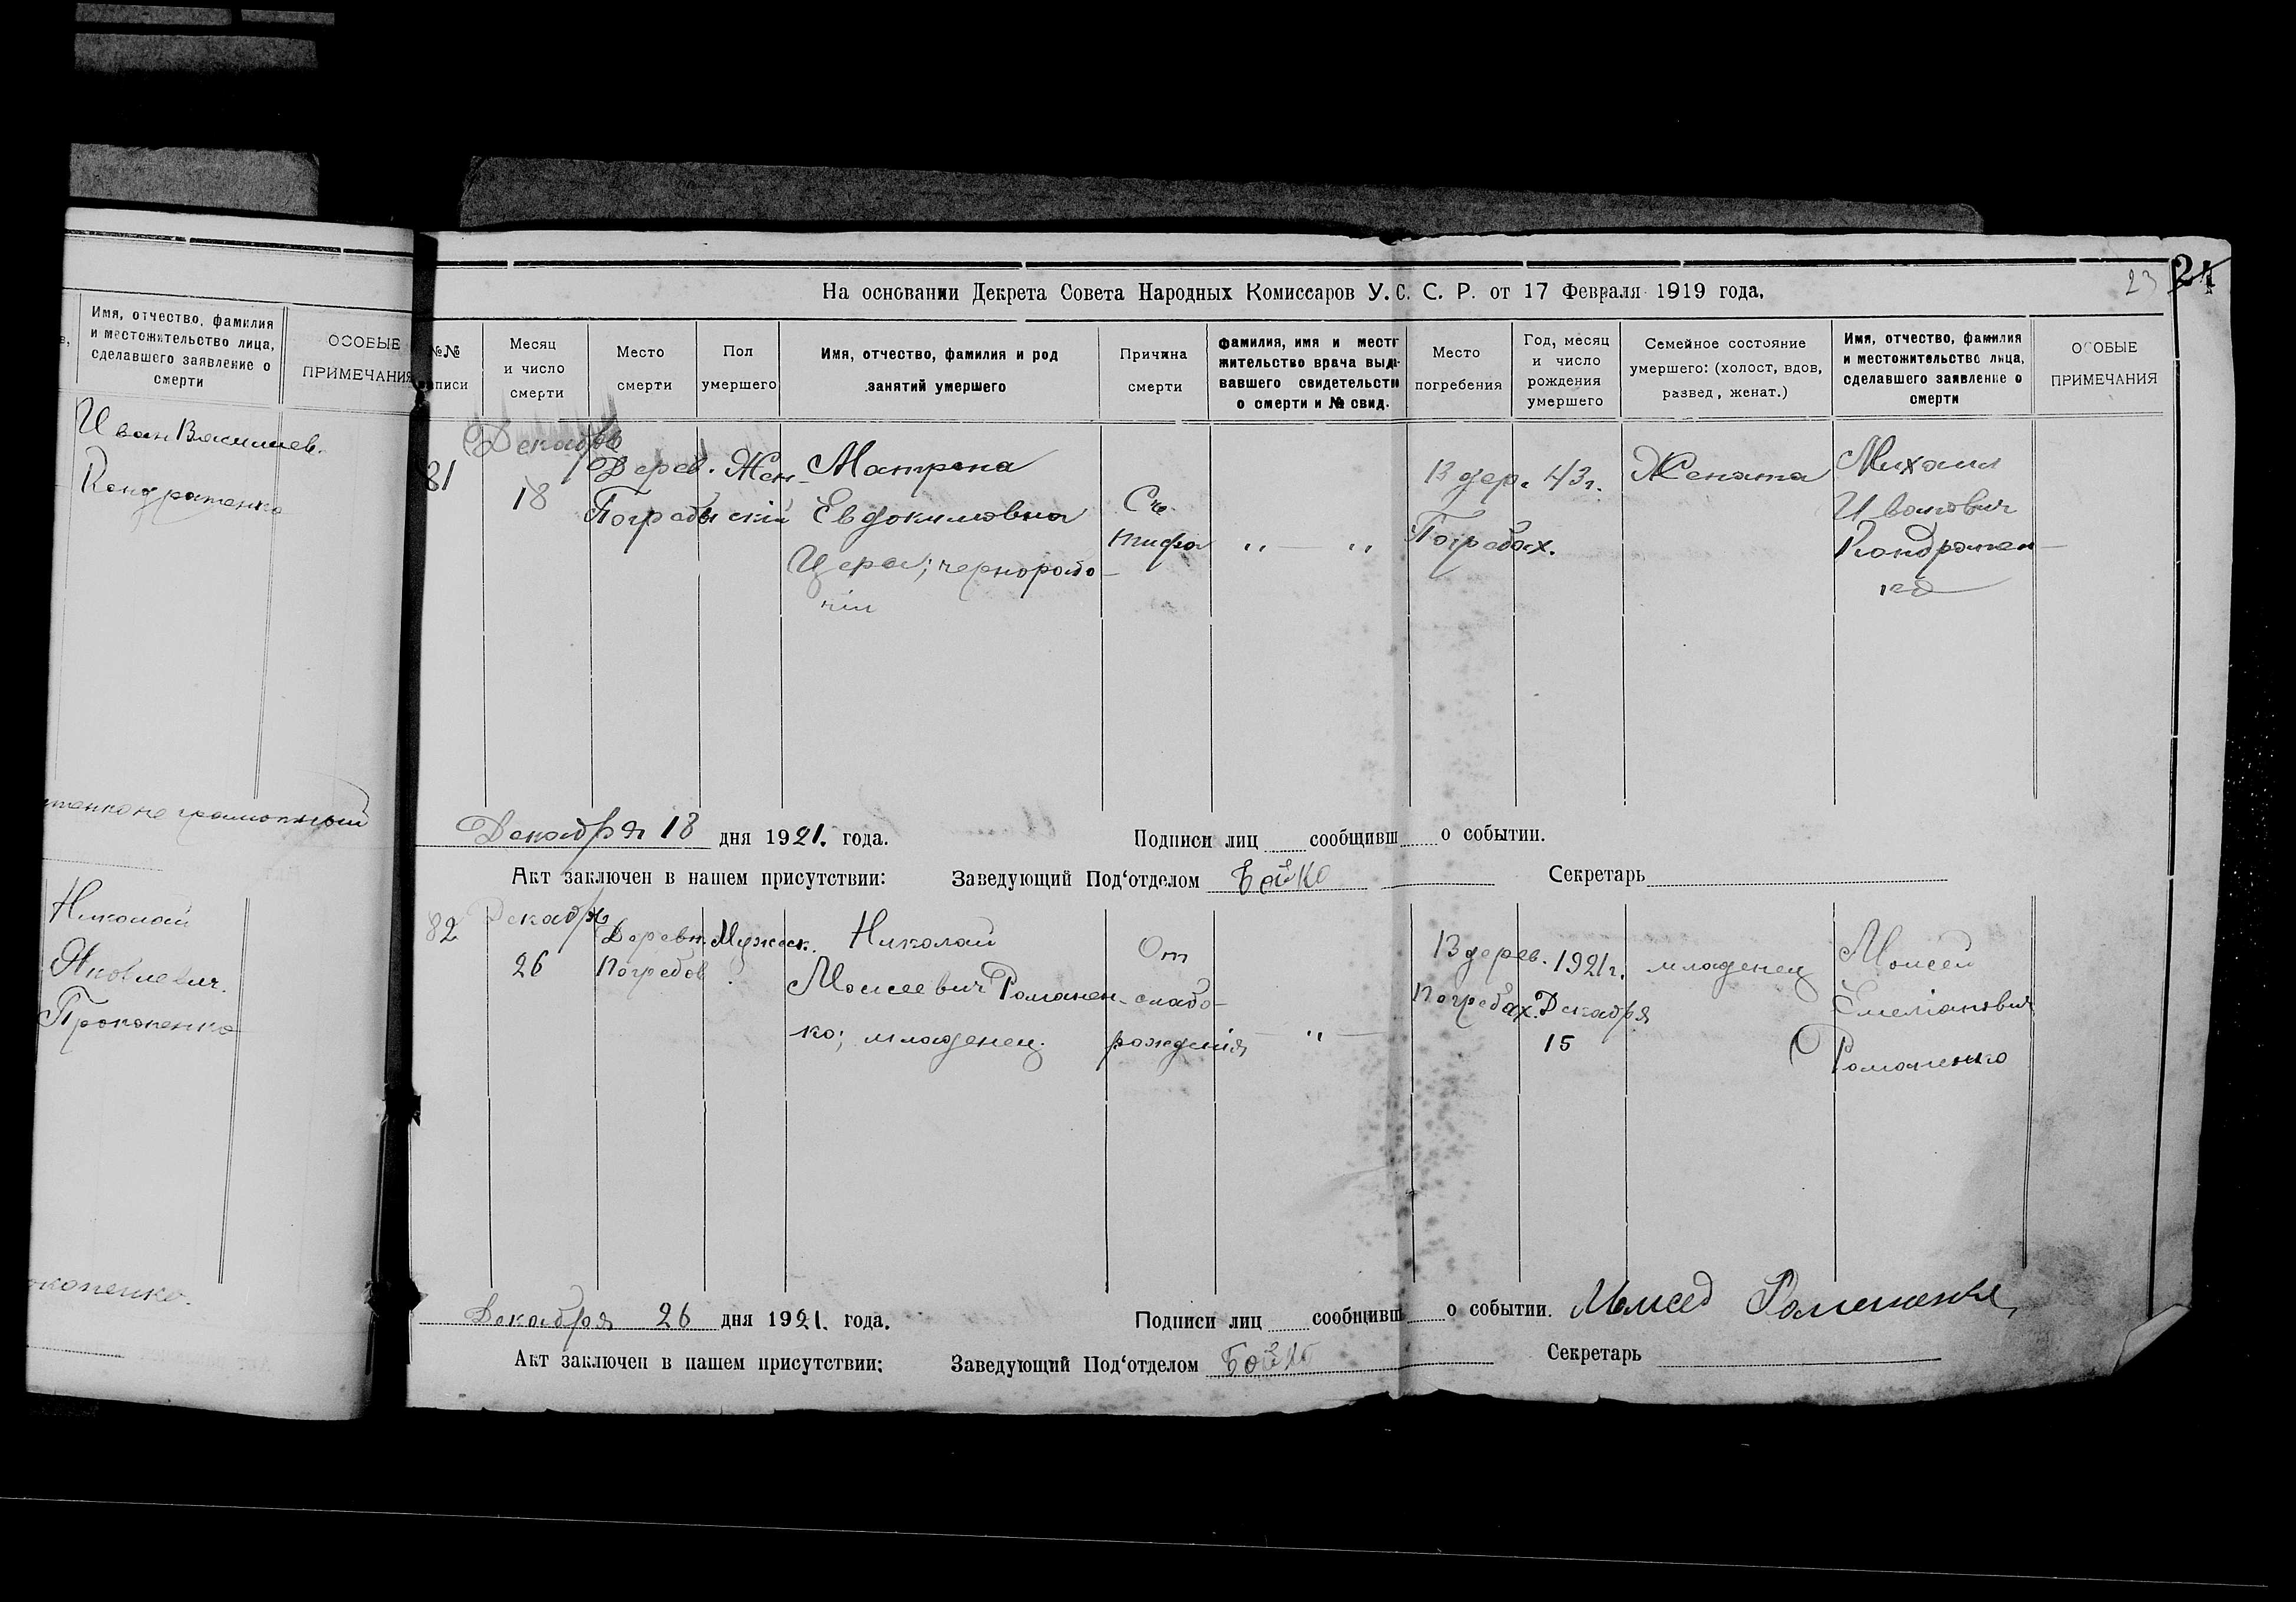 Имя, отчество, фамилия
и местожительство лица,
сделавшего заявление о
смерти
ОСОБЫЕ
ПРИМЕЧАНИЯ
Иван Васильев.
Кондратенко
неграмотный
Николай
Яковлевич.
Прокопенко
окопенко.
23
На основании Декрета Совета Народных Комиссаров У. С. С. Р. от 17 Февраля 1919 года.
№№
записи
Месяц
и число
смерти
Место
смерти
Пол
умершего
Имя, отчество, фамилия и род
занятий умершего
Причина
смерти
Место
погребения
Год, месяц
и число
рождения
умершего
Семейное состояние
умершего: (холост, вдов,
развед, женат.)
Имя, отчество, фамилия
и местожительство лица,
сделавшего заявление о
смерти
ОСОБЫЕ
ПРИМЕЧАНИЯ
81
Декабря
18
Дерев.
Жен-
Матрена
Евдокимовна
тифа
В дер.
Погребах.
43 г.
Жената
Михаил
Иванович
Кондратен-
ко
Декабря 18 дня 1921. года.
Подписи лиц сообщивш о событии.
Акт заключен в нашем присутствии: Заведующий Под‘отделом Бойко Секретарь
82
Декабря
26
Деревн.
Погребов
Мужеск.
Николай
Моисеевич Романен-
ко; младенец.
От
слабо-
рождения
„
В дерев.
Погребах.
1921 г.
Декабря
15
младенец
Моисей
Емелianович
Романенко
Декабря 26 дня 1921. года.
Подписи лиц сообщивш о событии. Моисей Романенко
Акт заключен в нашем присутствии: Заведующий Под‘отделом Бойко Секретарь